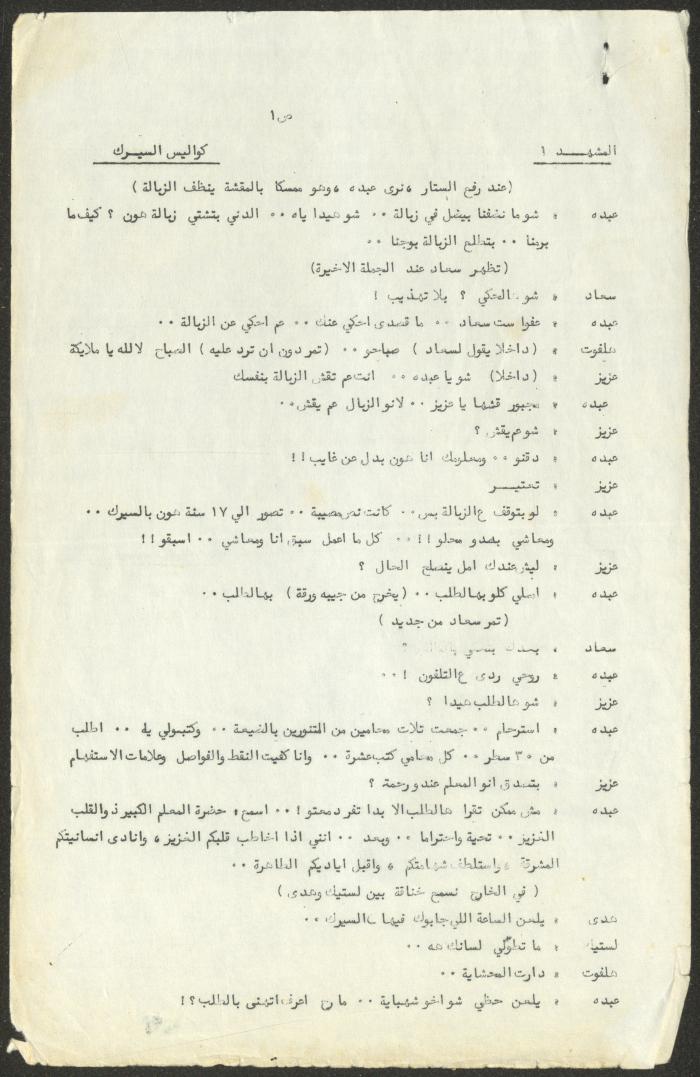 ص ١
المشهد ١ كواليس السيرك
(عند رفع الستار ،نرى عبده ،وهو ممسكا بالمقشة ينظف الزبالة )
عبده : شو ما نضفنا بيضل في زبالة ٠٠ شو هيدا ياه ٠٠ الدني بتشتي زبالة هون ؟ كيف ما
برمنا ٠٠ بتطلع الزبالة بوجنا ٠٠
(تظهر سعاد عند الجملة الاخيرة)
سعاد : شو هالحكي ؟ بلا تهذيب !
عبده : عفوا ست سعاد ٠٠ ما قصدى احكي عنك ٠٠ عم احكي عن الزبالة ٠٠
هلفوت : (داخلا يقول لسعاد ) صباحو ٠٠ (تمر دون ان ترد عليه ) الصباح لالله يا ملايكة
عزيز : (داخلا) شو يا عبده ٠٠ انت عم تقش الزبالة بنفسك
عبده : مجبور قشها يا عزيز ٠٠ لانو الزبال عم يقش ٠٠
عزيز : شو عم يقش ؟
عبده : دقنو ٠٠ ومعلومك انا هون بدل عن غايب !!
عزيز : تعتيـــر
عبده : لو بتوقف ع الزبالة بس ٠٠ كانت نص مصيبة ٠٠ تصور الي ١٧ سنة هون بالسيرك ٠٠
ومعاشي بعدو محلو !! ٠٠ كل ما اعمل سبق انا ومعاشي ٠٠ اسبقو !!
عزيز : ليش عندك امل ينصلح الحال ؟
عبده : املي كلو بهالطلب ٠٠ (يخرج من جيبه ورقة ) بهالطلب ٠٠
(تمر سعاد من جديد )
سعاد : بعدك ؟
عبده : روحي ردى ع التلفون ! ٠٠
عزيز : شو هالطلب هيدا ؟
عبده : استرحام ٠٠ جمعت تلات محامين من المتنورين بالضيعة ٠٠ وكتبولي يله ٠٠ اطلب
من ٣٠ سطر ٠٠ كل محامي كتب عشرة ٠٠ وانا كفيت النقط والفواصل وعلامات الاستفهام
عزيز : بتصدق انو المعلم عندو رحمة ؟
عبده : مش ممكن تقرا هالطلب الا بدا تفر دمعتو ! ٠٠ اسمع : حضرة المعلم الكبير ذ والقلب
الغزيز ٠٠ تحية واحتراما ٠٠ وبعد ٠٠ انني اذا اخاطب قلبكم الغزيز ، وانادى انسانيتكم
المشرقة ، واستلطف شهامتكم ، واقبل اياديكم الطاهرة ٠٠
( في الخارج نسمع خناقة بين لستيك وهدى )
هدى : يلعن الساعة اللي جابوك فيها السيرك ٠٠
لستيك : ما تطولي لسانك هه ٠٠
هلفوت : دارت المحشاية ٠٠
عبده : يلعن حظي شو اخو شهباية ٠٠ ما رح اعرف اتهنى بالطلب ؟!